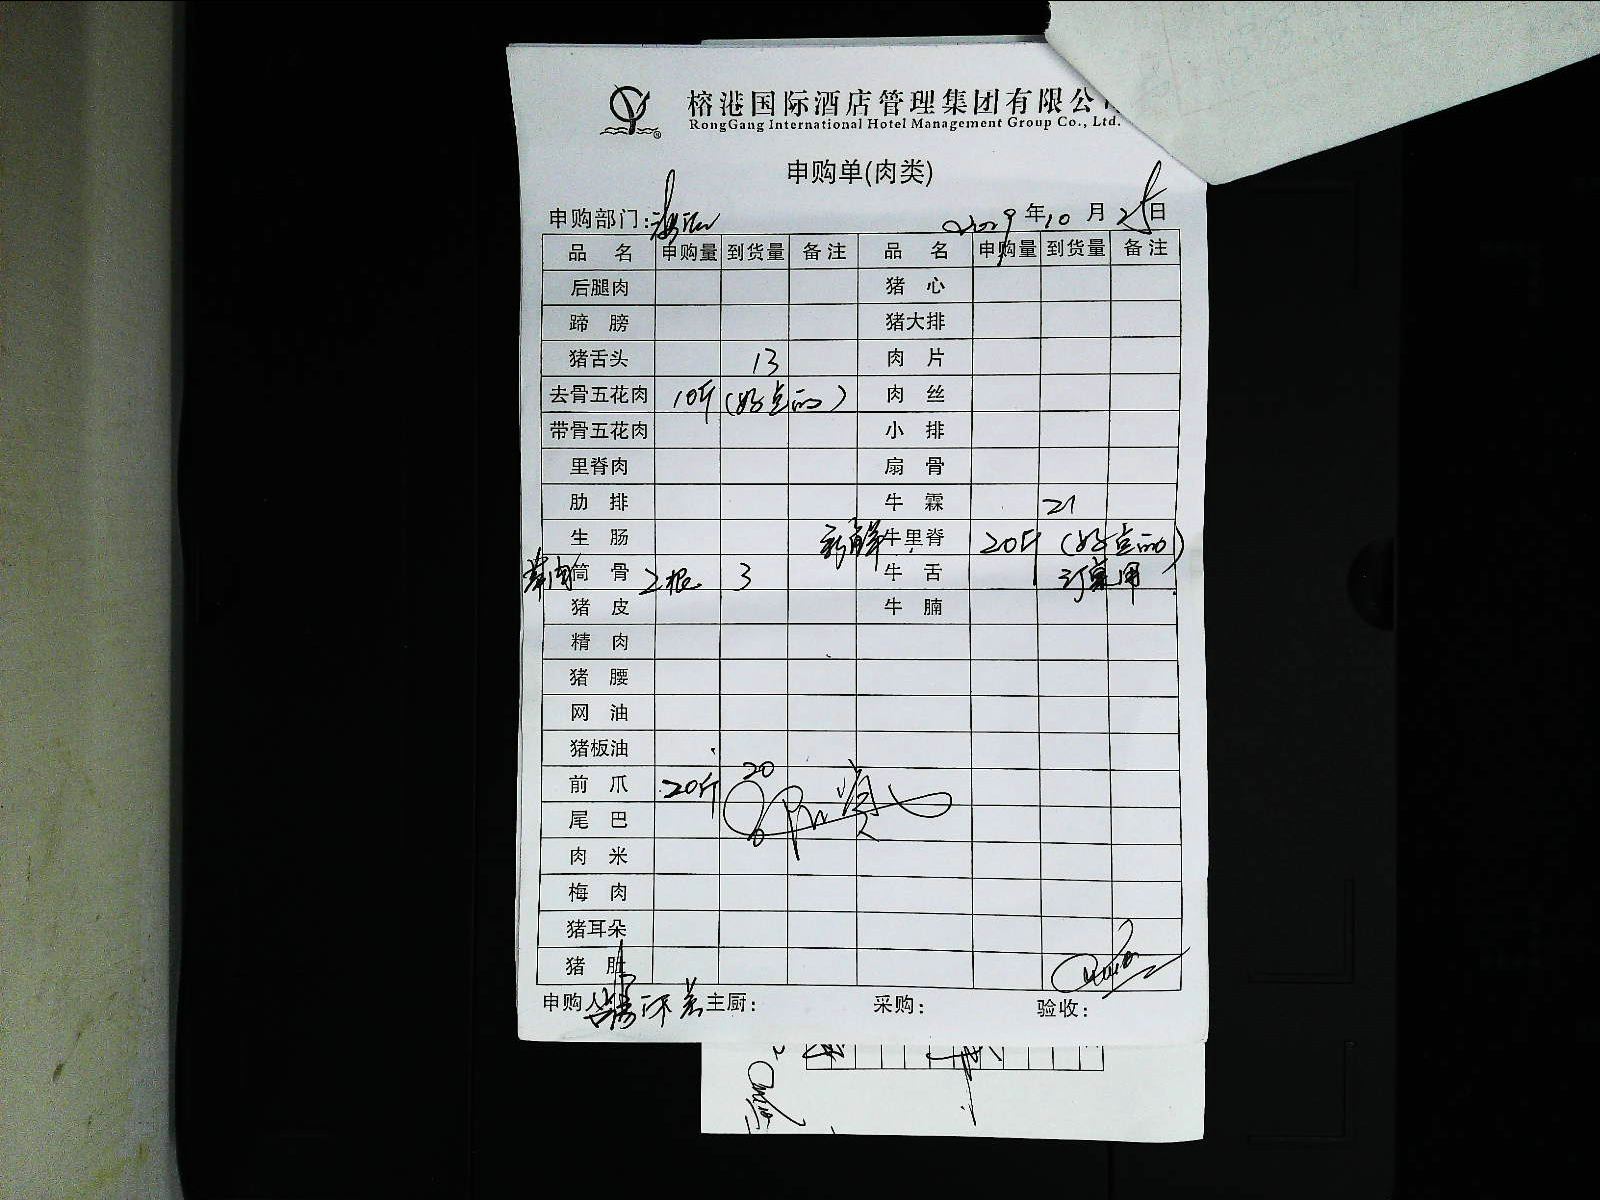 榕港国际酒店管理集团有限公
RongGang International Hotel Management Group Co., Ltd.
申购单(肉类)
申购部门: 年10月25日
品 名 申购量 到货量 备注 品 名 申购量 到货量 备注
后腿肉 猪 心
蹄 膀 猪大排
猪舌头 13 肉 片
去骨五花肉 10斤(好点的) 肉 丝
带骨五花肉 小 排
里脊肉 扇 骨
肋 排 牛 霖 21
生 肠 新鲜牛里脊 20斤(好点的)
带肉筒 骨 2根 3 牛 舌 订桌用
猪 皮 牛 腩
精 肉
猪 腰
网 油
猪板油
前 爪 20斤 20
尾 巴
肉 米
梅 肉
猪耳朵
猪 肚
申购人 主厨: 采购: 验收: